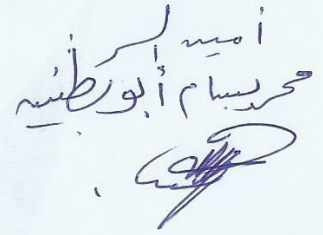 أمين السر
محمد بسام أبو بطنين